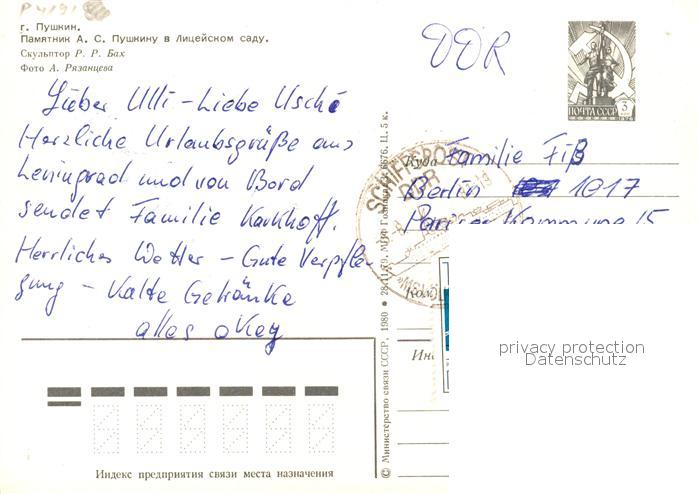 Р 4191
г. Пушкин.
Памятник А. С. Пушкину в Лицейском саду.
Скульптор Р. Р. Бах
Фото А. Рязанцева
DDR
ПОЧТА СССР 3
Lieber Ulli - Liebe Uschi
Herzliche Urlaubsgrüße aus
Leningrad und von Bord
sendet Familie Karkhoff.
Herrliches Wetter - Gute Verpfle-
gung - Kalte Getränke
alles okey
Индекс предприятия связи места назначения
© Министерство связи СССР, 1980 ● 28.11.79. Ц. 5 к.
SCHIFFSPOST
DDR
Куда Familie Fiß
Berlin 1017
Pariser Kommune 15
Ком
Ин
privacy protection
Datenschutz